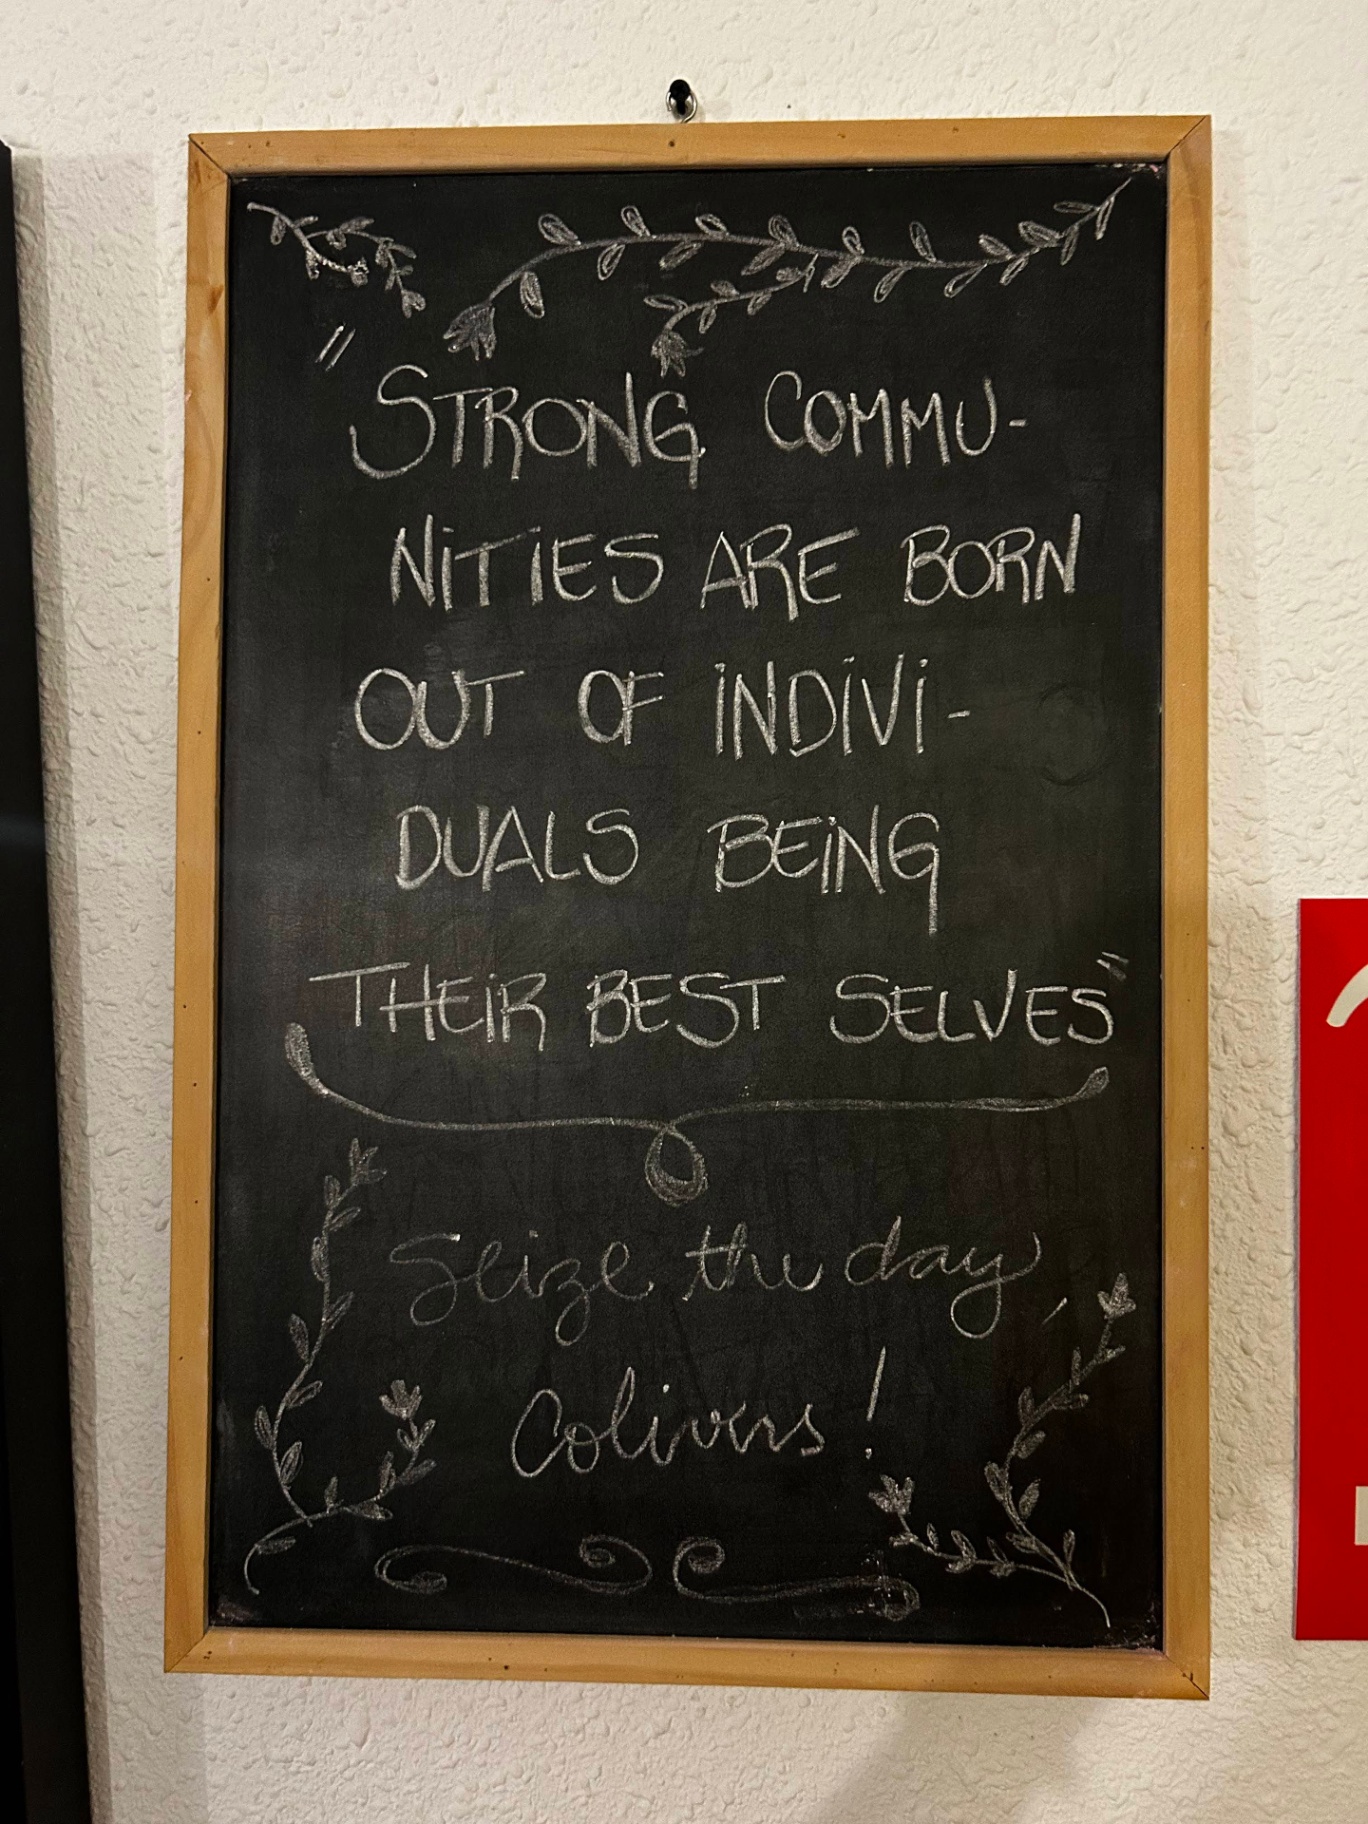 "STRONG COMMU-
NITIES ARE BORN
OUT OF INDIVI-
DUALS BEING
THEIR BEST SELVES"
Seize the day,
Colivers!